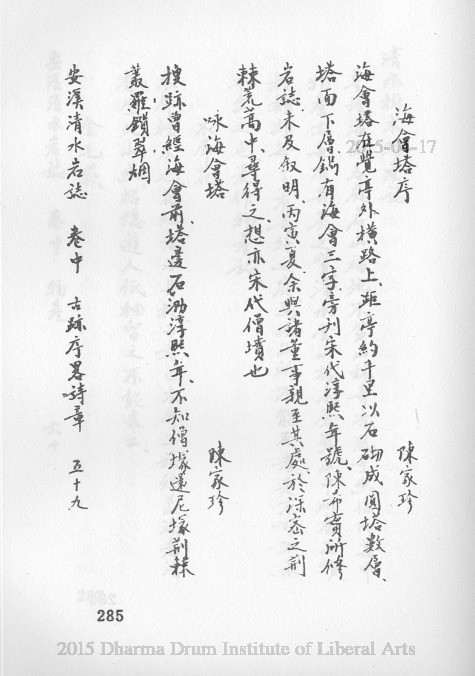 海會塔序 陳家珍
海會塔在覺亭外橫路上、距亭約半里、以石砌成圓塔數層、
塔面下層鐫有海會三字、旁刊宋代淳熙年號、陳布賚所修
岩誌、未及叙明、丙寅夏、余與諸董事親至其處、於深密之荆
棘荒蒿中、尋得之、想亦宋代僧墳也
咏海會塔 陳家珍
搜跡曾經海會前、塔邊石泐淳熙年、不知僧塚還尼塚、荆棘
叢羅鎖翠烟
安溪清水岩誌 卷中 古跡序畧詩章 五十九
285
2015-03-17
2015 Dharma Drum Institute of Liberal Arts